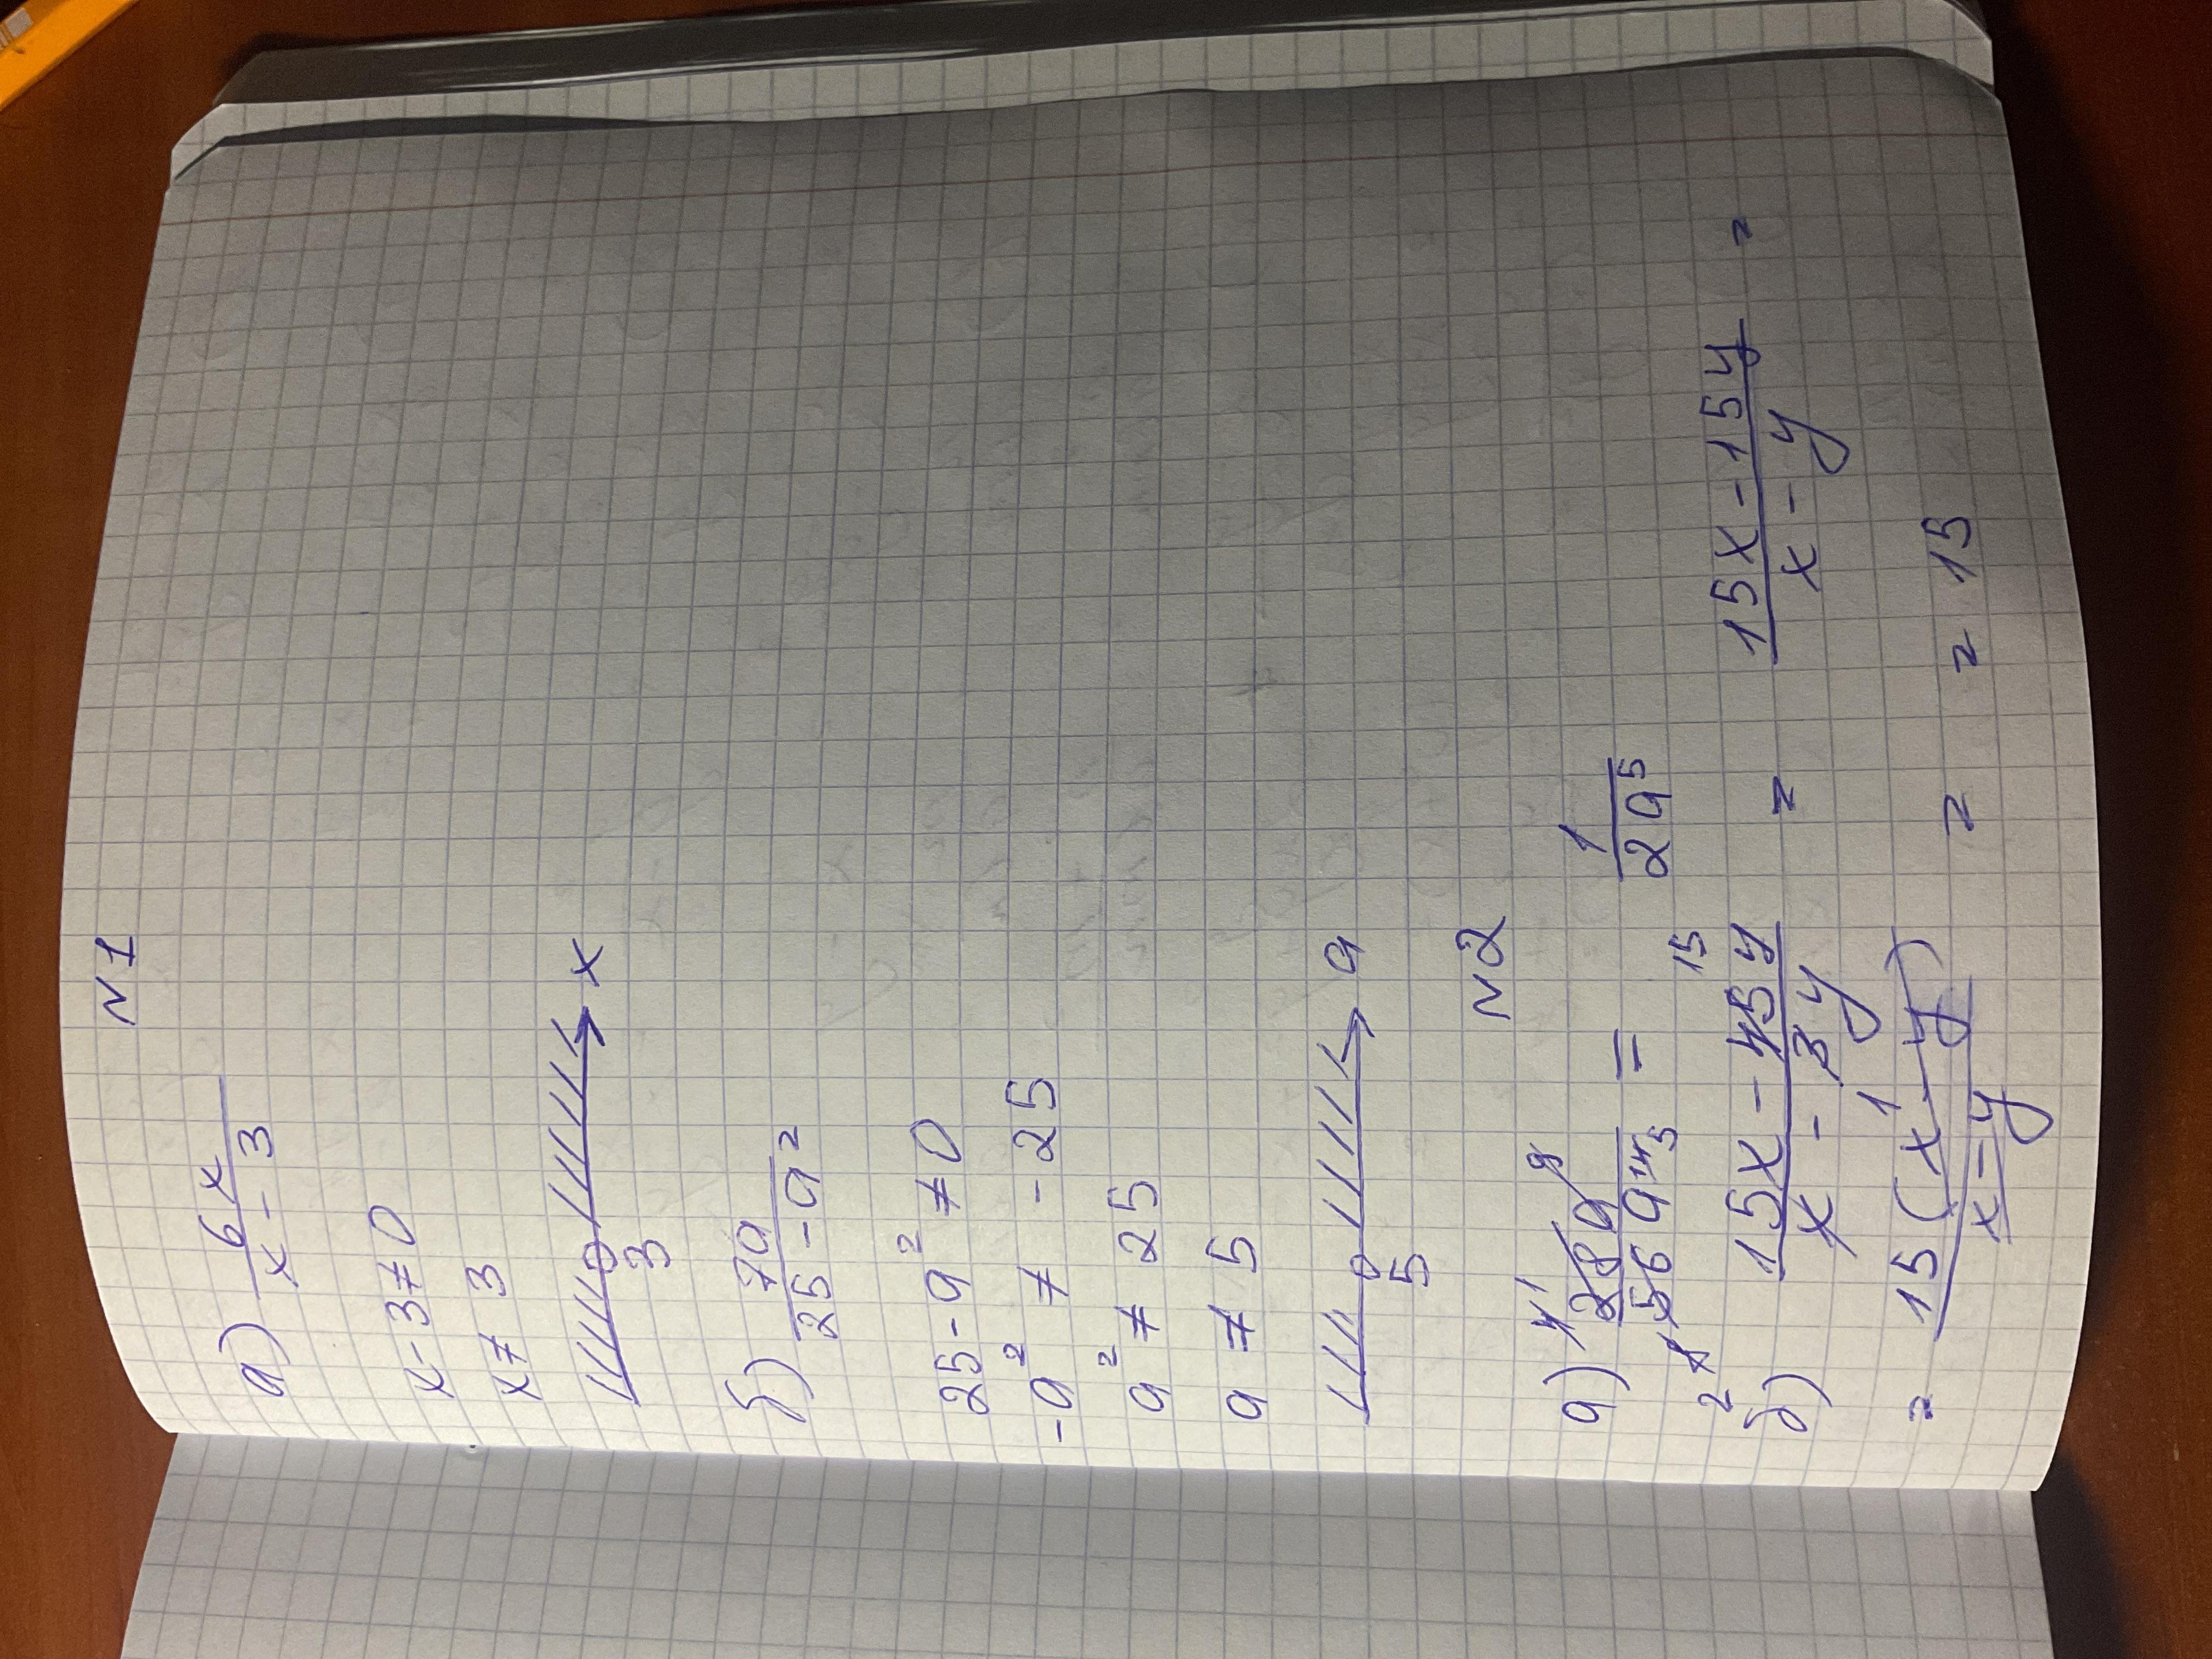 N1
а) 6x / x - 3
x - 3 ≠ 0
x ≠ 3
3 x
б) 7a / 25 - a²
25 - a² ≠ 0
-a² ≠ -25
a² ≠ 25
a ≠ 5
5 a
N2
а) 28a⁹ / 56a¹⁴ = 1 / 2a⁵
б) 15x - 45y / x - 3y = 15x - 15y / x - y =
= 15(x - y) / x - y = = 15